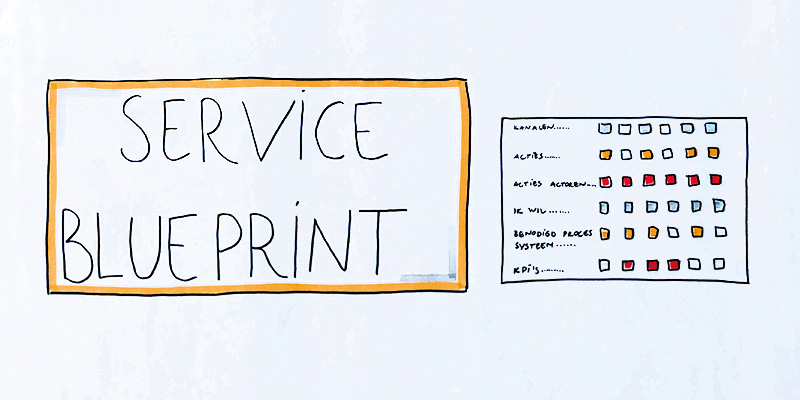 SERVICE
BLUEPRINT
KANALEN......
ACTIES......
ACTIES ACTOREN...
IK WIL.......
BENODIGD PROCES
SYSTEEM......
KPI'S........